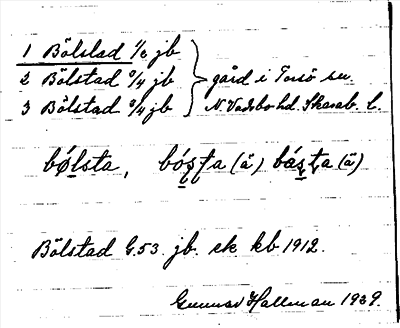 1 Bölstad 1/2 jb
2 Bölstad 3/4 jb gård i Torsö sn.
3 Bölstad 3/4 jb N. Vadsbo hd. Skarab. l.
bólsta, bósta (ä) básta (ä)
Bölstad G.53. jb. ek kb 1912.
Gunnar Hallman 1939.